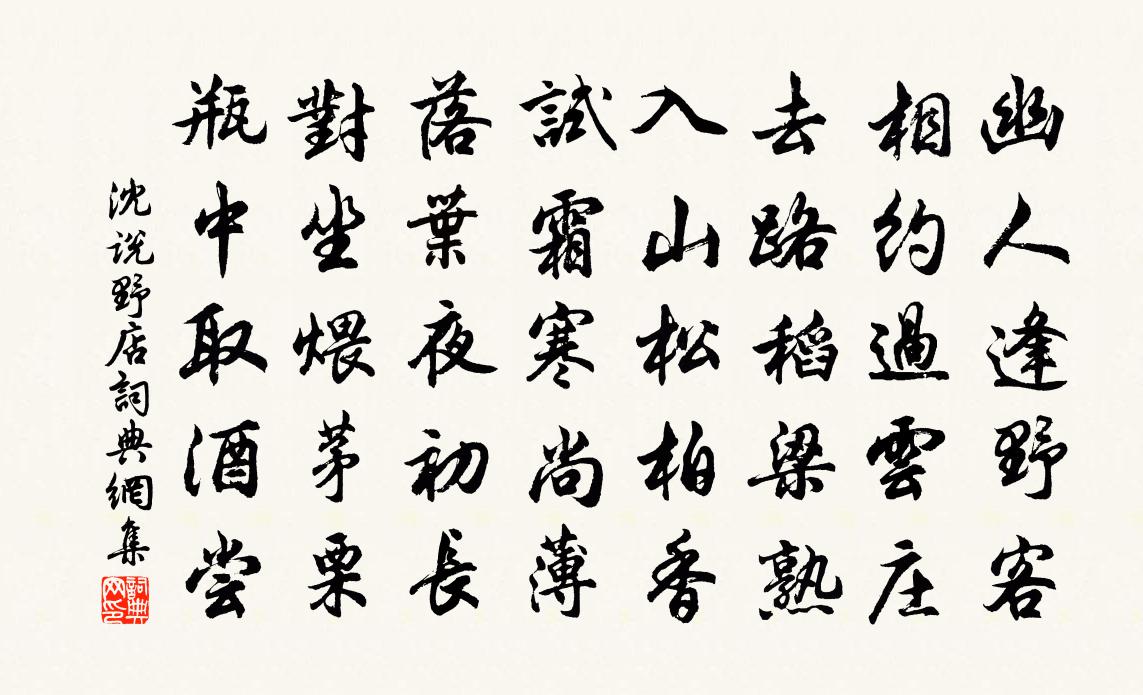 幽人逢野客
相約過雲庄
去路稻梁熟
入山松柏香
試霜寒尚薄
落葉夜初長
對坐煨茅栗
瓶中取酒尝
沈說野店詞典網集
詞典网印